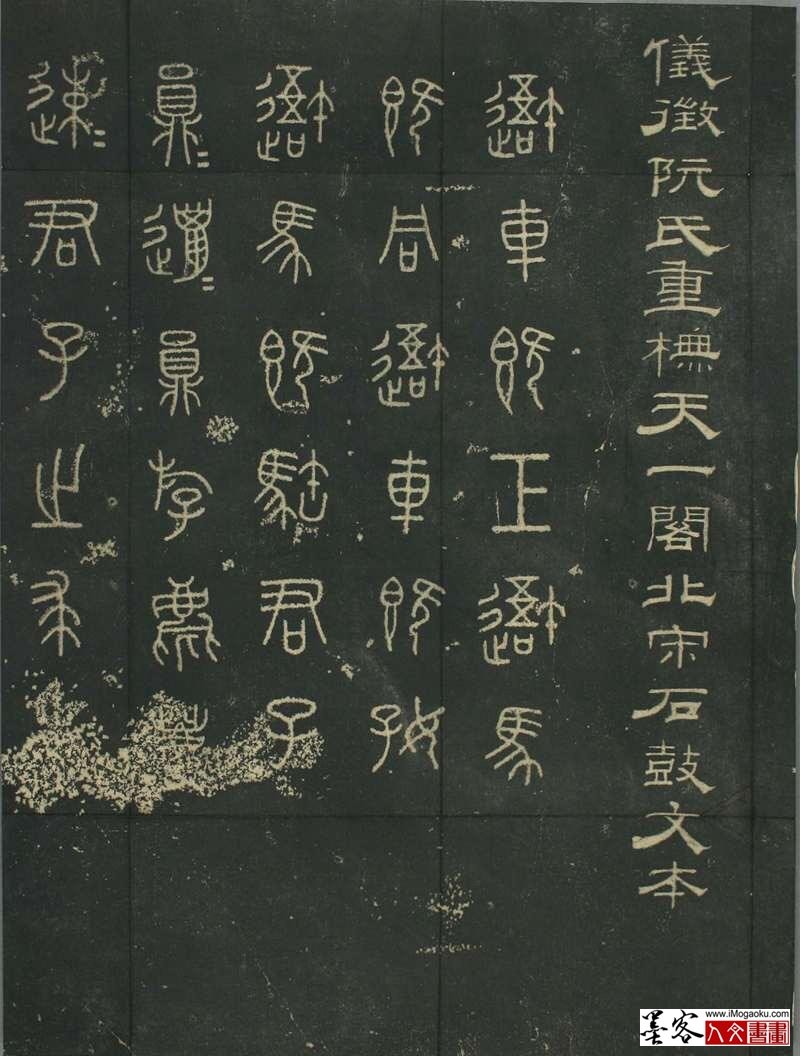 儀徵阮氏重橅天一閣北宋石鼓文本
吾車既工吾馬
既同吾車既好
吾馬既𩢲君子
員=邋=員斿麀鹿
速=君子之求
墨客
www.iMogaoku.com
人文書畫